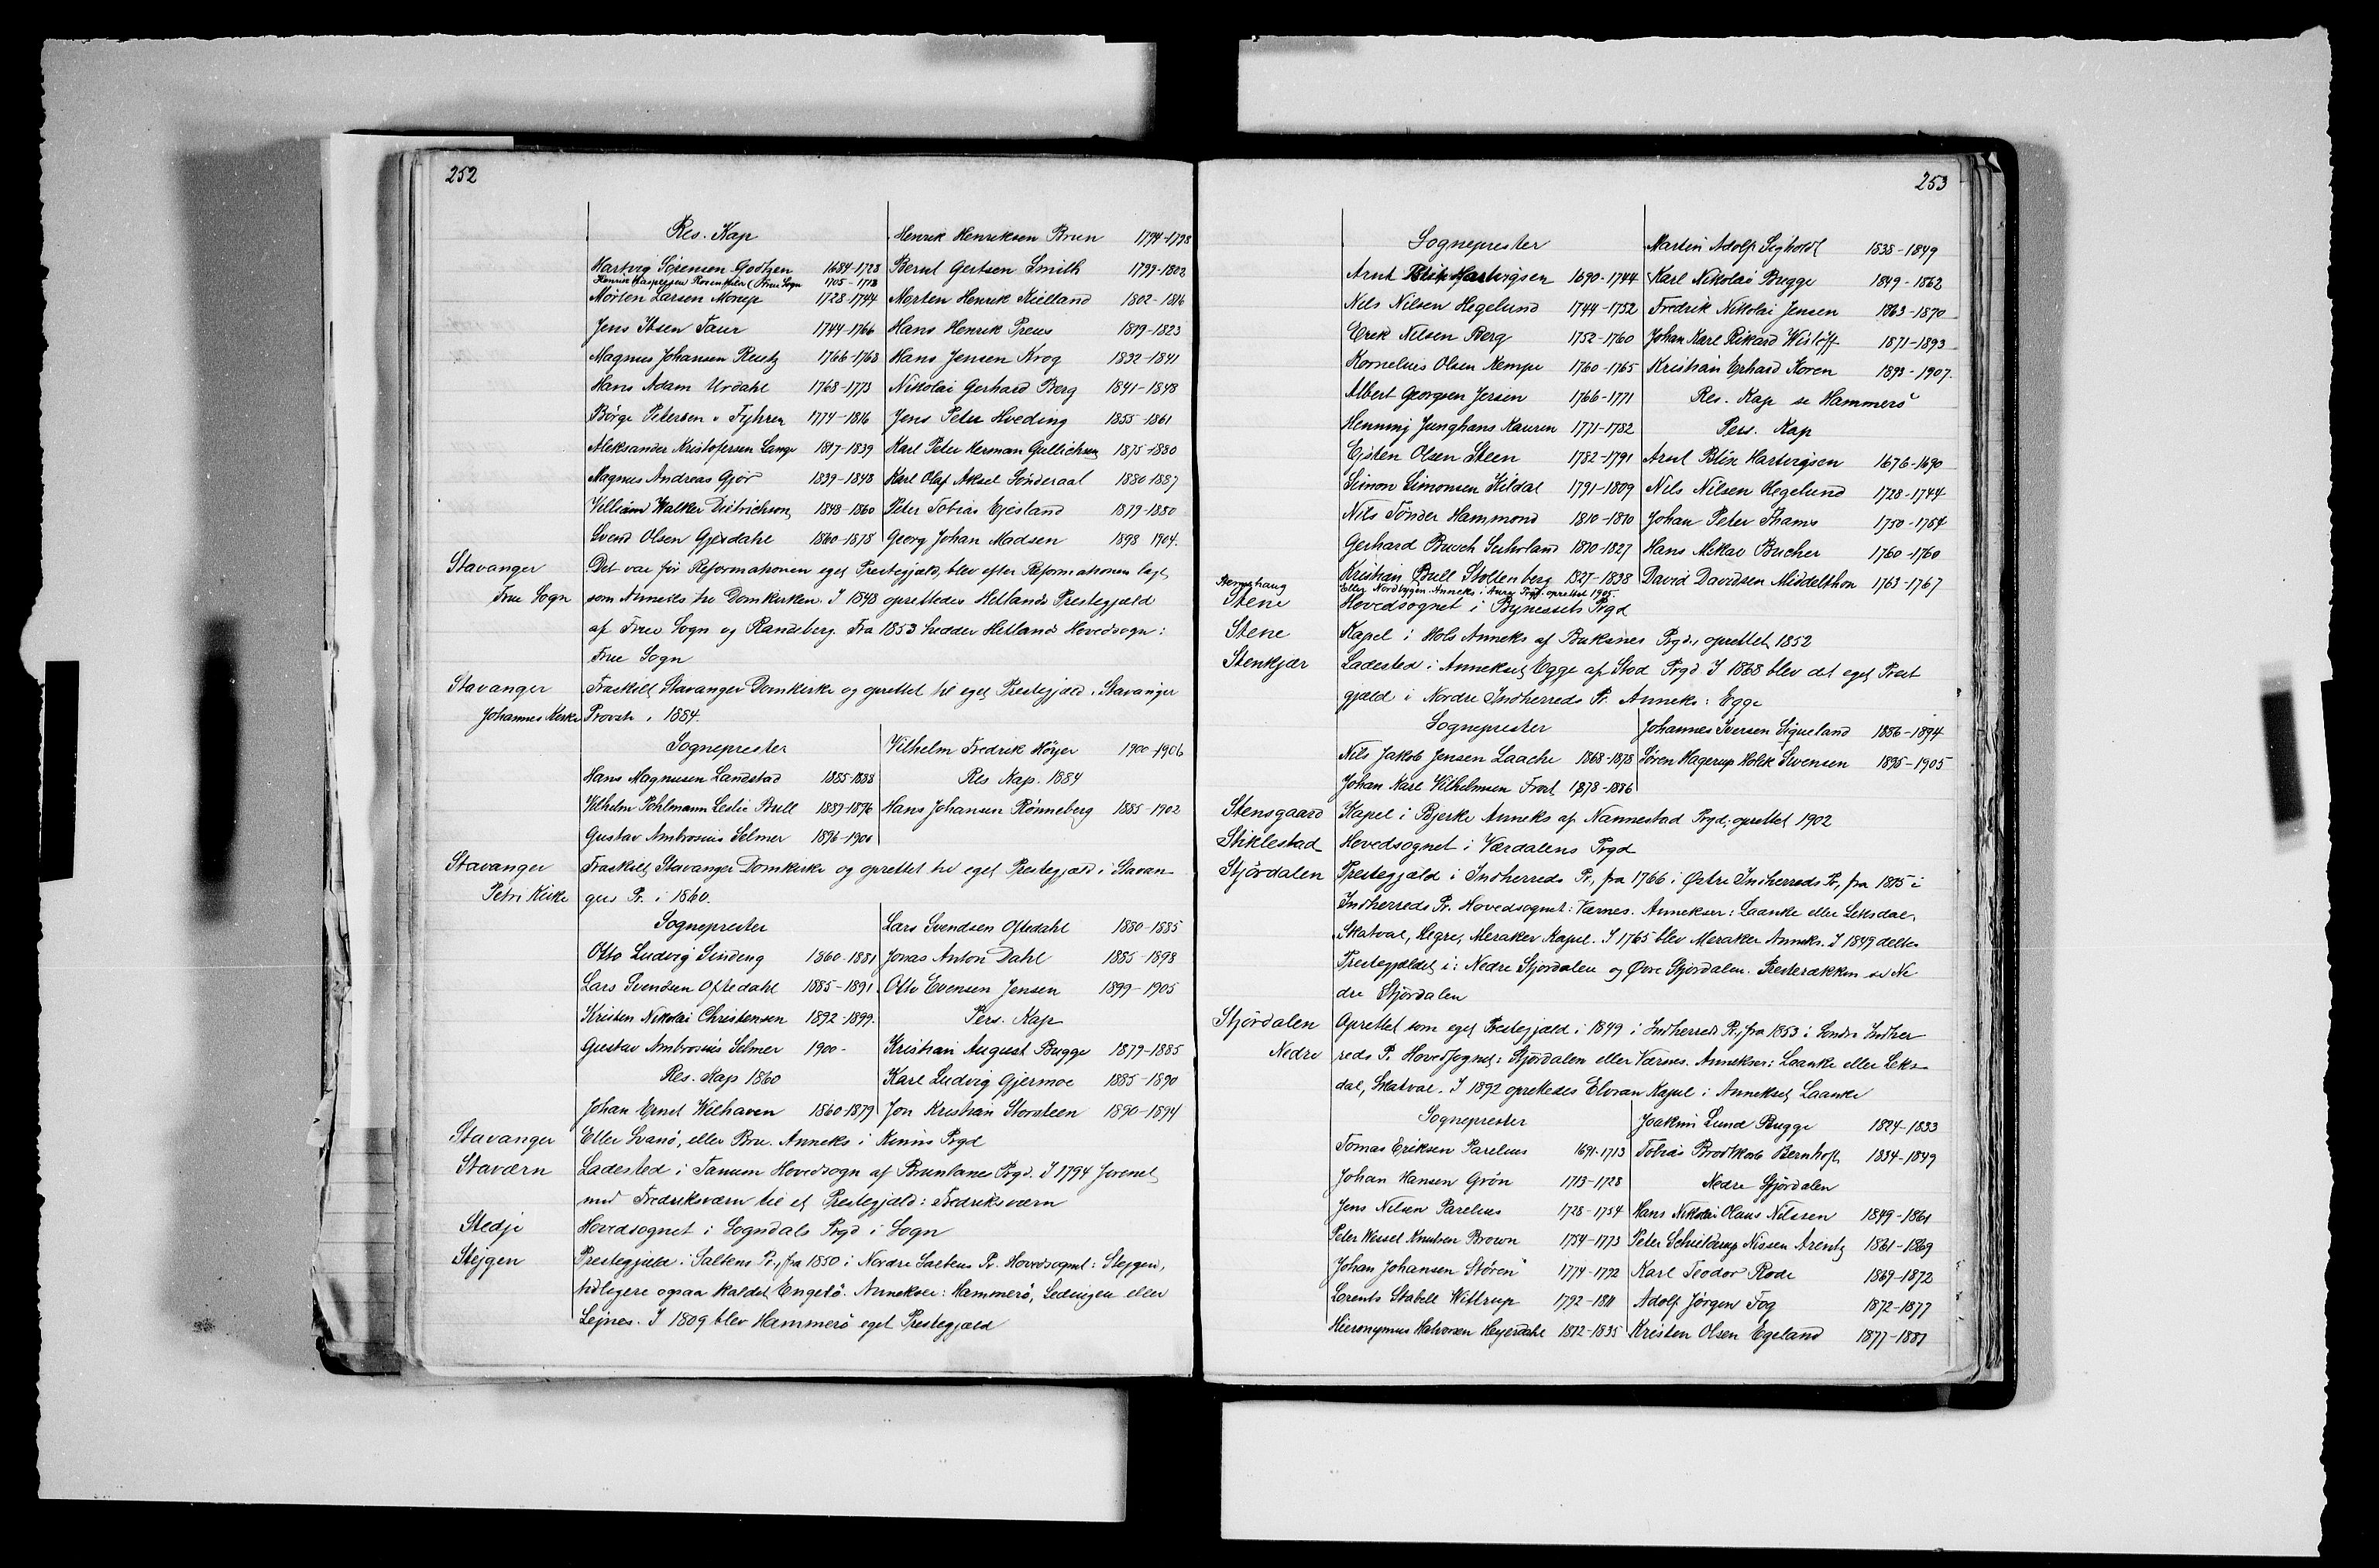 252
Res. Kap
Hartvig Sörensen Godtzen 1684-1728
Henrik Kaspersen Rosenkilde (Frue Sogn 1705-1718
Morten Larsen Morup 1728-1744
Jens Ibsen Faur 1744-1766
Magnus Johansen Reutz 1766-1768
Hans Adam Urdahl 1768-1773
Börge Petersen v Fyhren 1774-1816
Aleksander Kristofersen Lange 1817-1839
Magnus Andreas Gjör 1839-1848
William Walker Dietrichson 1848-1860
Svend Olsen Gjerdahl 1860-1878
Henrik Henriksen Brun 1794-1798
Bernt Gertsen Smith 1799-1802
Morten Henrik Kielland 1802-1816
Hans Henrik Preus 1819-1823
Hans Jensen Krog 1832-1841
Nikolai Gerhard Berg 1841-1848
Jens Peter Hveding 1855-1861
Karl Peter Herman Gullichsen 1875-1880
Karl Olaf Aksel Sönderaal 1880-1887
Peter Tobias Ejesland 1879-1880
Georg Johan Madsen 1898 1904.
Stavanger Det var för Reformationen eget Prestegjæld, blev efter Reformationen lagt
Frue Sogn som Anneks til Domkirken. I 1848 oprettedes Hetlands Prestegjæld
af Frue Sogn og Randeberg. Fra 1853 hedder Hetlands Hovedsogn:
Frue Sogn
Stavanger Fraskilt Stavanger Domkirke og oprettet til eget Prestegjæld i Stavanger
Johannes Kirke Provsti i 1884.
Sogneprester
Hans Magnusen Landstad 1885-1888
Vilhelm Pohlmann Leslie Bull 1889-1896
Gustav Ambrosius Selmer 1896-1900
Vilhelm Fredrik Höyer 1900-1906
Res. Kap. 1884
Hans Johansen Rönneberg 1885-1902
Stavanger Fraskilt Stavanger Domkirke og oprettet til eget Prestegjæld i Stavan
Petri Kirke gers Pr. i 1860.
Sogneprester
Otto Ludvig Sinding 1860-1881
Lars Svendsen Oftedahl 1885-1891
Kristen Nikolai Christensen 1892-1899.
Gustav Ambrosius Selmer 1900-
Res. Kap 1860
Johan Ernst Welhaven 1860-1879
Lars Svendsen Oftedahl 1880-1885
Jonas Anton Dahl 1885-1898
Otto Evensen Jensen 1899-1905
Pers. Kap
Kristian August Bugge 1879-1885
Karl Ludvig Gjermoe 1885-1890
Jon Kristian Storsteen 1890-1894
Stavanger Eller Svanö, eller Bru. Anneks i Kinns Prgd
Staværn Ladested i Tanum Hovedsogn af Brunlanes Prgd. I 1794 forenet
med Fredriksværn til et Prestegjæld: Fredriksværn
Stedje Hovedsognet i Sogndals Prgd i Sogn
Stejgen Prestegjæld i Saltens Pr., fra 1850 i Nordre Saltens Pr. Hovedsognet: Stejgen,
tidligere ogsaa kaldet Engelö. Annekser: Hammerö, Ledingen eller
Lejnes. I 1809 blev Hammerö eget Prestegjæld
253
Sogneprester
Arnt Blix Hartvigsen 1690-1744
Nils Nilsen Hegelund 1744-1752
Erik Nilsen Berg 1752-1760
Kornelius Olsen Kempe 1760-1765
Albert Georgsen Jersin 1766-1771
Henning Junghans Kaurin 1771-1782
Ejsten Olsen Steen 1782-1791
Simon Simonsen Kildal 1791-1809
Nils Tönder Hammond 1810-1810
Gerhard Buvch Suhrland 1810-1827
Kristian Bull Stoltenberg 1827-1838
Martin Adolf Sigholdt 1838-1849
Karl Nikolai Bugge 1849-1862
Fredrik Nikolai Jensen 1863-1870
Johan Karl Rikard Wislöff 1871-1893
Kristian Erhard Koren 1893-1907.
Res. Kap se Hammerö
Pers. Kap
Arnt Blix Hartvigsen 1676-1690
Nils Nilsen Hegelund 1728-1744
Johan Peter Thams 1750-1754
Hans Mikal Bucher 1760-1760
David Davidsen Middelthon 1763-1767
Stemshaug Eller Nordbygden. Anneks i Aure Prgd. oprettet 1905.
Stene Hovedsognet i Bynessets Prgd
Stene Kapel i Hols Anneks af Buksnes Prgd., oprettet 1852
Stenkjær Ladested i Annekset Egge af Stod Prgd. I 1868 blev det eget Prest
gjæld i Nordre Indherreds Pr. Anneks: Egge
Sogneprester
Nils Jakob Jensen Laache 1868-1878
Johan Karl Vilhelmsen Frost 1878-1886
Johannes Iversen Siqueland 1886-1894
Sören Hagerup Holck Svensen 1895-1905
Stensgaard Kapel i Bjerke Anneks af Nannestad Prgd, oprettet 1902
Stiklestad Hovedsognet i Værdalens Prgd
Stjördalen Prestegjæld i Indherreds Pr, fra 1766 i Østre Indherreds Pr, fra 1815 i
Indherreds Pr. Hovedsognet: Værnes. Annekser: Laanke eller Leksdal,
Skatval, Hegre, Meraker Kapel. I 1765 blev Meraker Anneks. I 1849 deltes
Prestegjældet i: Nedre Stjördalen og Øvre Stjördalen. Presterækken se Ne
dre Stjördalen
Stjördalen Oprettet som eget Prestegjæld i 1849 i Indherreds Pr, fra 1853 i Söndre Indher
Nedre reds P. Hovedsognet: Stjördalen eller Værnes. Annekser: Laanke eller Leks
dal, Skatval. I 1892 oprettedes Elvran Kapel i Annekset Laanke
Sogneprester
Tomas Eriksen Parelius 1691-1713
Johan Hansen Grön 1713-1728
Jens Nilsen Parelius 1728-1754
Peter Wessel Knutsen Brown 1754-1773
Johan Johansen Stören 1774-1792
Lorents Stabell Wittrup 1792-1811
Hieronymus Halvorsen Heyerdahl 1812-1835
Joakim Lund Bugge 1824-1833
Tobias Brodtkorb Bernhoft 1834-1849
Nedre Stjördalen
Hans Nikolai Olaus Nilssen 1849-1861
Peter Schielderup Nissen Arentz 1861-1869
Karl Teodor Rode 1869-1872
Adolf Jörgen Fog 1872-1877
Kristen Olsen Egeland 1877-1887